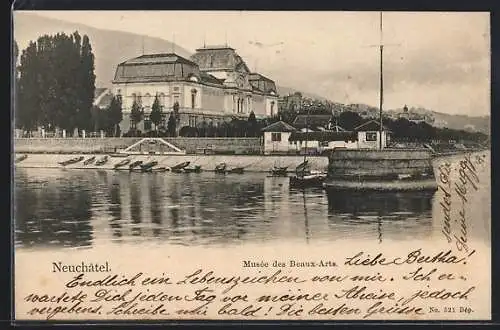 Neuchâtel
Musée des Beaux-Arts.
Liebe Bertha!
Endlich ein Lebenszeichen von mir. Ich
erwartete Dich jeden Tag vor meiner Abreise, jedoch
vergebens. Schreibe mir bald! Die besten Grüsse
sendet Deine
No. 521 Dép.